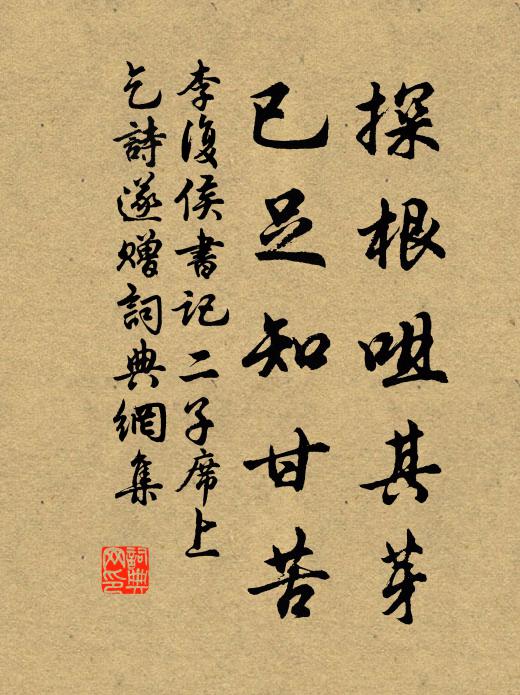 探根咀其芽
已足知甘苦
李復侯書記二子席上
乞詩遂贈詞典網集
詞典
网印